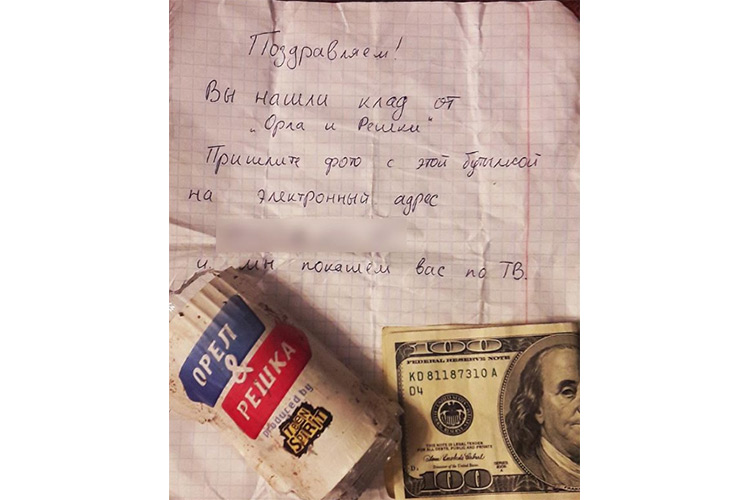 Поздравляем!
Вы нашли клад от
„Орла и Решки"
Пришлите фото с этой бутылкой
на электронный адрес
и мы покажем вас по ТВ.
ОРЕЛ
&
РЕШКА
produced by
TEEN
SPIRIT
100
FEDERAL RESERVE NOTE
KD 81187310 A
D4
THIS NOTE IS LEGAL TENDER
FOR ALL DEBTS, PUBLIC AND PRIVATE
100